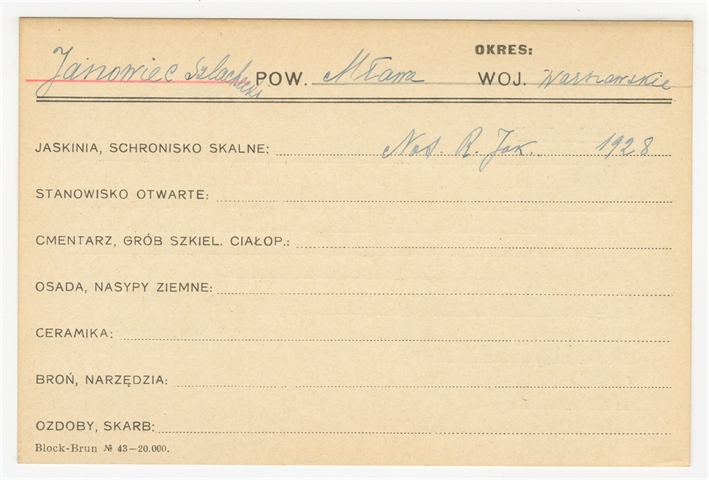 OKRES:
Janowiec Szlachecki POW. Mława WOJ. Warszawskie
JASKINIA, SCHRONISKO SKALNE: Not. R. Jak. 1928
STANOWISKO OTWARTE:
CMENTARZ, GRÓB SZKIEL. CIAŁOP.:
OSADA, NASYPY ZIEMNE:
CERAMIKA:
BROŃ, NARZĘDZIA:
OZDOBY, SKARB:
Block-Brun № 43—20.000.